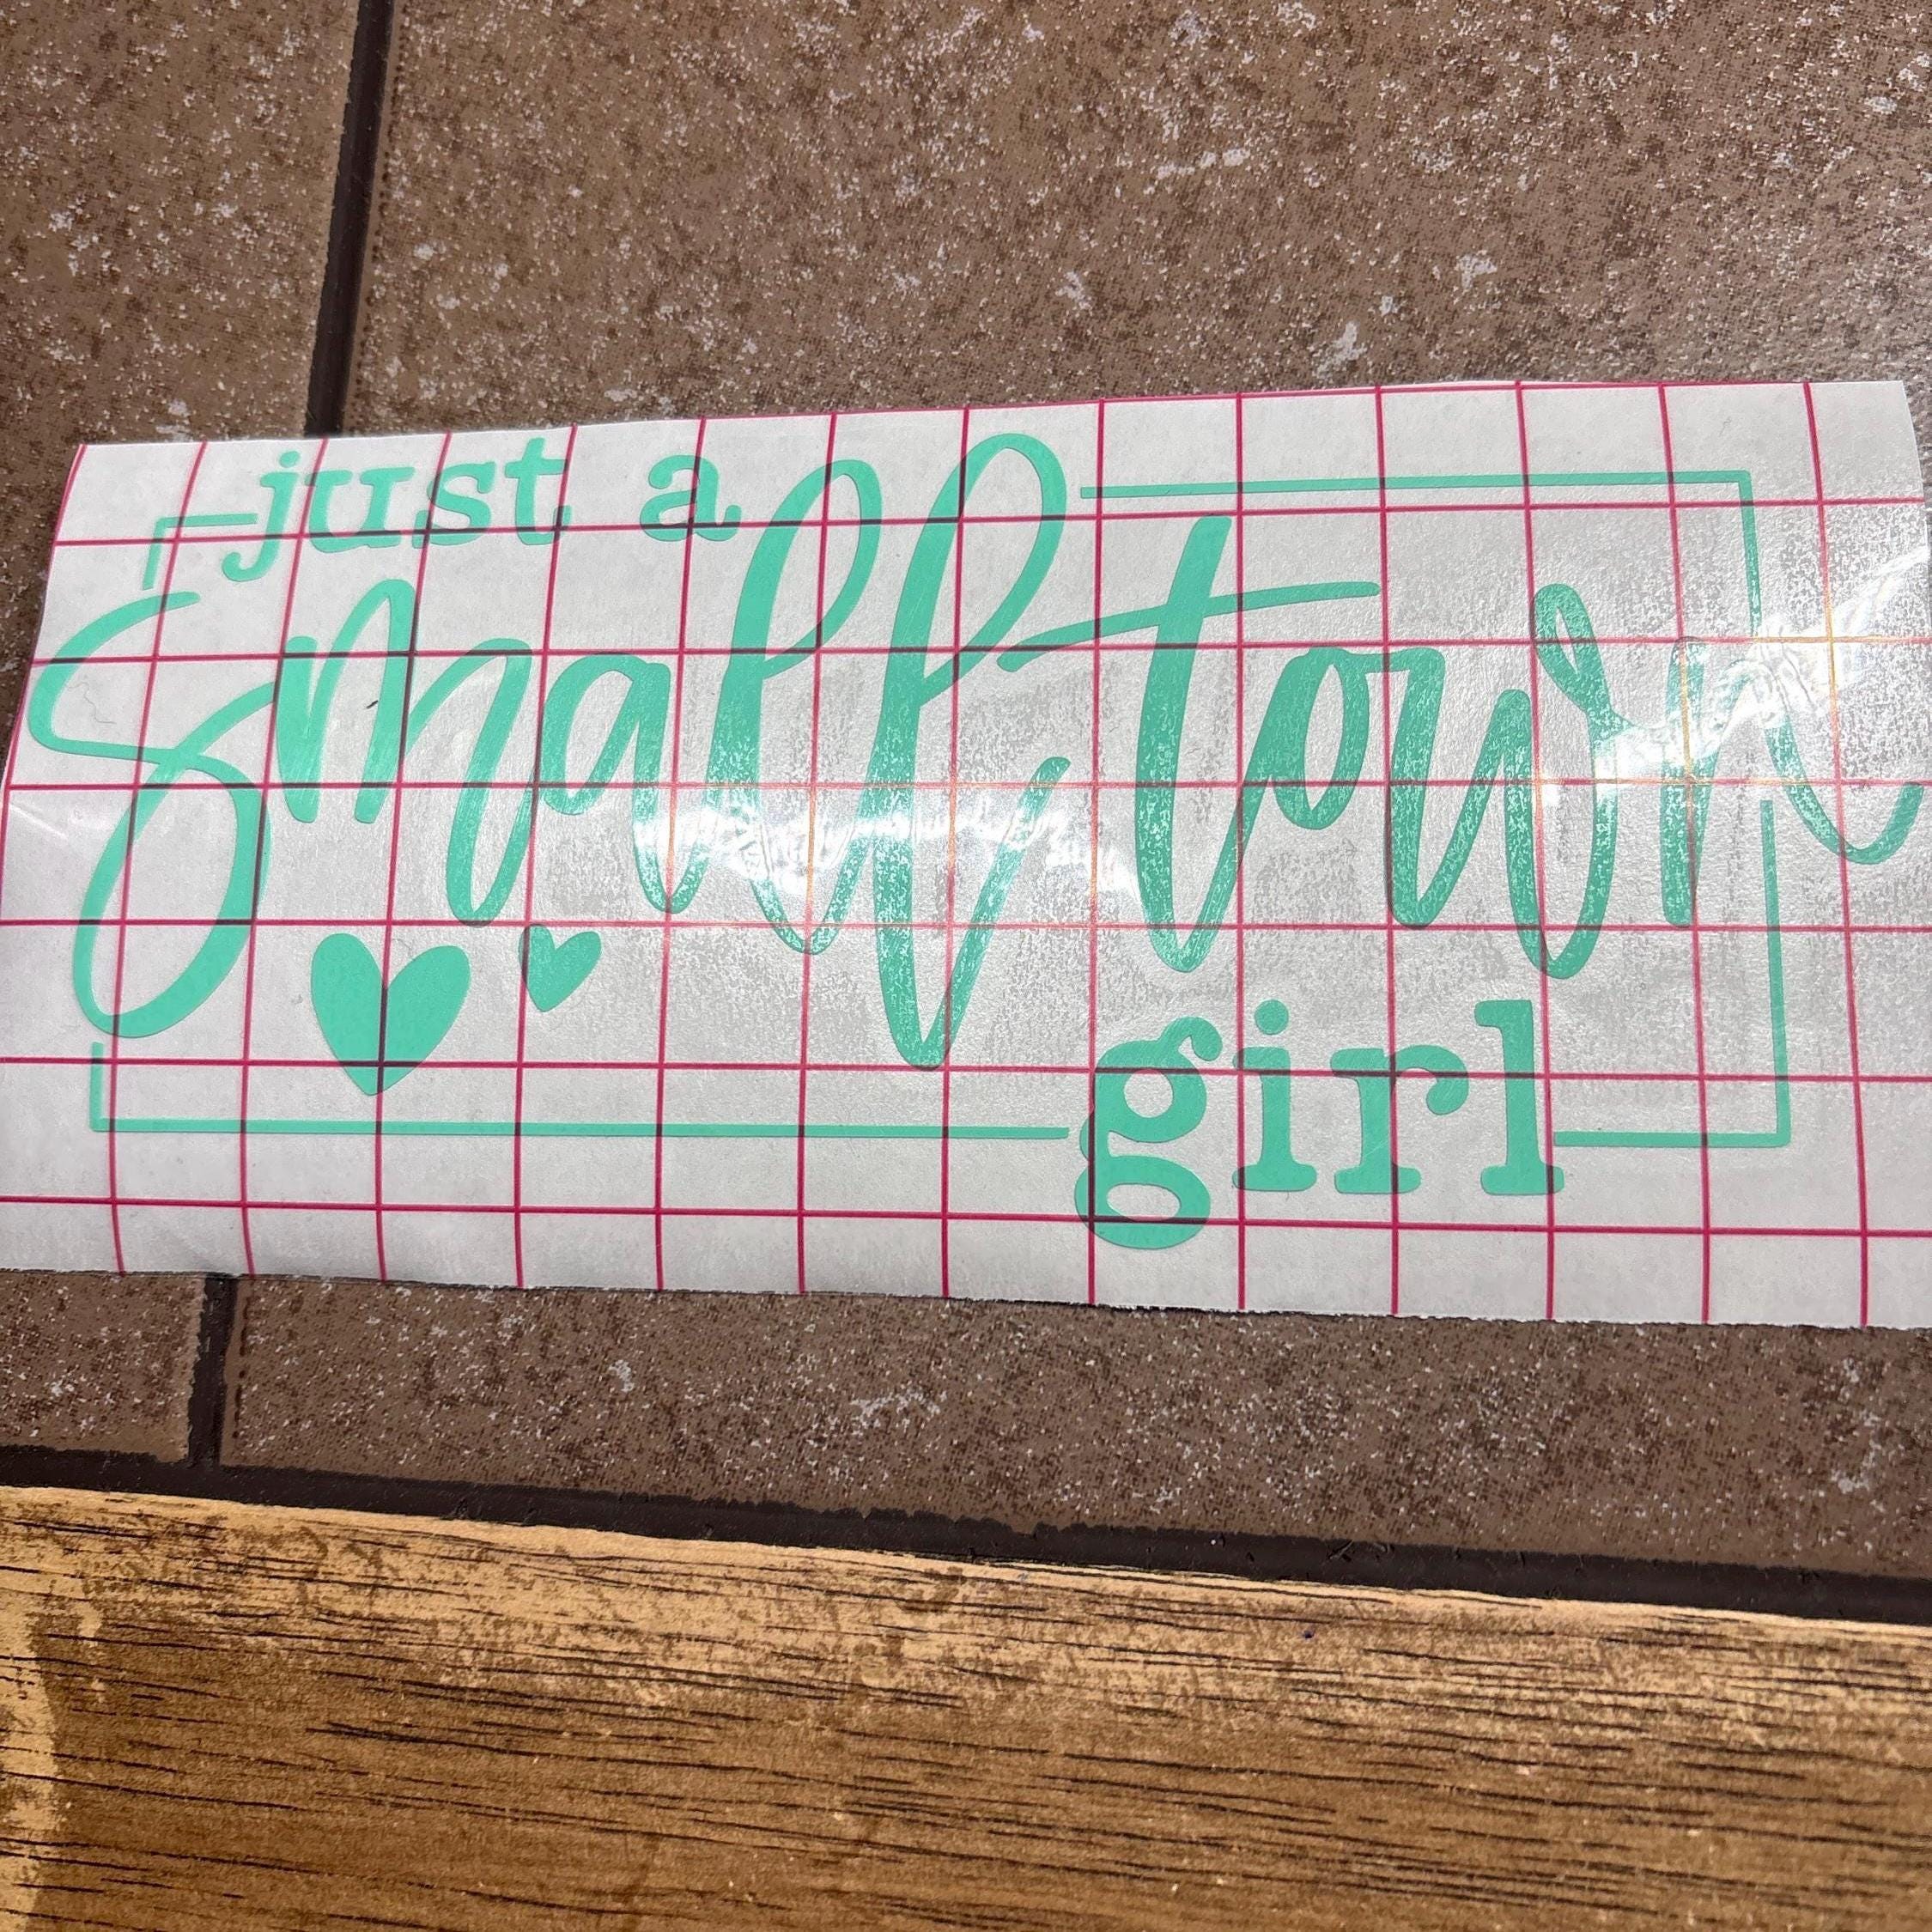 just a
Small town
girl